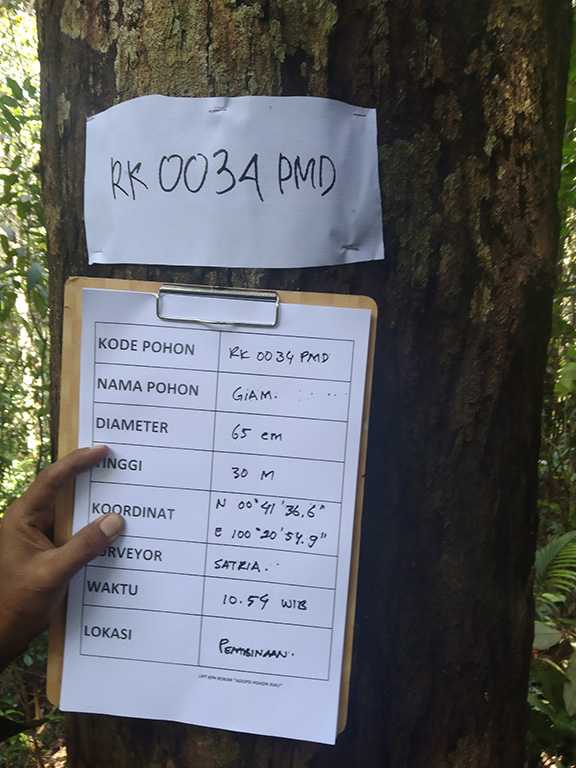 RK 0034 PMD
KODE POHON RK 0034 PMD
NAMA POHON GIAM.
DIAMETER 65 cm
TINGGI 30 M
KOORDINAT N 00°41'36,6"
E 100°20'54.9"
SURVEYOR SATRIA.
WAKTU 10.59 WIB
LOKASI PEMBINAAN.
UPT KPH ROKAN "ADOPSI POHON RIAU"